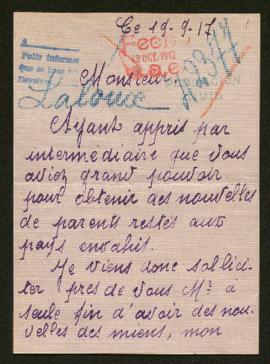 Ce 19-9-17
A
Fully informed
12 OCT. 1917
Monsieur,
Lalouce
Ayant appris par
intermédiaire que vous
aviez grand pouvoir
pour obtenir des nouvelles
de parents restés aux
pays envahis.
Je viens donc sollici-
ter près de vous Mr à
seule fin d'avoir des nou-
velles des miens, mon